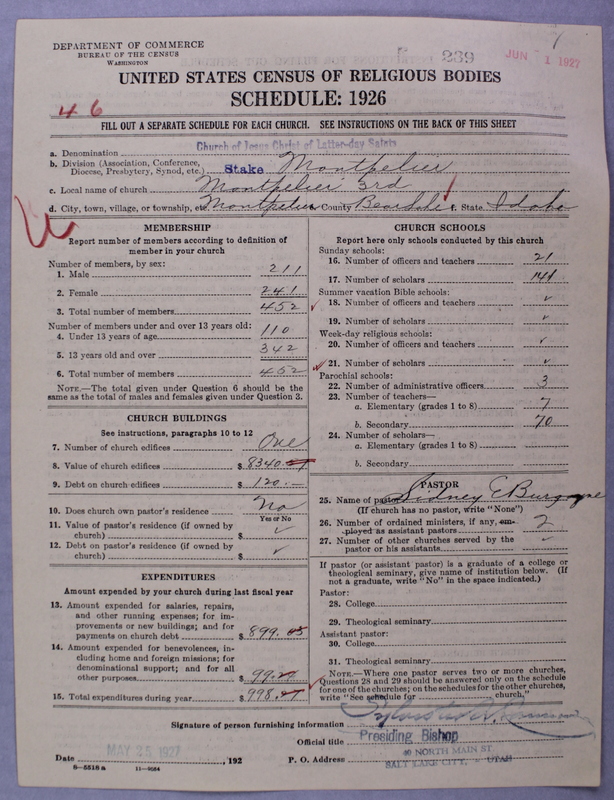 DEPARTMENT OF COMMERCE
BUREAU OF THE CENSUS
WASHINGTON
239
JUN 1 1927
UNITED STATES CENSUS OF RELIGIOUS BODIES
SCHEDULE: 1926
46
FILL OUT A SEPARATE SCHEDULE FOR EACH CHURCH. SEE INSTRUCTIONS ON THE BACK OF THIS SHEET
a. Denomination Church of Jesus Christ of Latter-day Saints
b. Division (Association, Conference, Diocese, Presbytery, Synod, etc.) Stake Montpelier
c. Local name of church Montpelier 3rd
d. City, town, village, or township, etc. Montpelier County Bearlake f. State Idaho
MEMBERSHIP
Report number of members according to definition of
member in your church
Number of members, by sex:
1. Male 211
2. Female 241
3. Total number of members 452
Number of members under and over 13 years old:
4. Under 13 years of age 110
5. 13 years old and over 342
6. Total number of members 452
NOTE.—The total given under Question 6 should be
same as the total of males and females given under Question 3.
CHURCH BUILDINGS
See instructions, paragraphs 10 to 12
7. Number of church edifices One
8. Value of church edifices $8340
9. Debt on church edifices $120.—
10. Does church own pastor's residence? No
Yes or No
11. Value of pastor's residence (if owned by
church) $ ✓
12. Debt on pastor's residence (if owned by
church) $ ✓
EXPENDITURES
Amount expended by your church during last fiscal year
13. Amount expended for salaries, repairs,
and other running expenses; for im-
provements or new buildings; and for
payments on church debt $899.
14. Amount expended for benevolences, in-
cluding home and foreign missions; for
denominational support; and for all
other purposes $99.
15. Total expenditures during year $998.
CHURCH SCHOOLS
Report here only schools conducted by this church
Sunday schools:
16. Number of officers and teachers 21
17. Number of scholars 141
Summer vacation Bible schools:
18. Number of officers and teachers ✓
19. Number of scholars ✓
Week-day religious schools:
20. Number of officers and teachers ✓
21. Number of scholars ✓
Parochial schools:
22. Number of administrative officers 3
23. Number of teachers—
a. Elementary (grades 1 to 8) 7
b. Secondary 70
24. Number of scholars—
a. Elementary (grades 1 to 8)
b. Secondary
PASTOR
25. Name of pastor Sidney E Burgoyne
(If church has no pastor, write "None")
26. Number of ordained ministers, if any, em-
ployed as assistant pastors 2
27. Number of other churches served by the
pastor or his assistants ✓
If pastor (or assistant pastor) is a graduate of a college or
theological seminary, give name of institution below. (If
not a graduate, write "No" in the space indicated.)
Pastor:
28. College
29. Theological seminary
Assistant pastor:
30. College
31. Theological seminary
NOTE.—Where one pastor serves two or more churches,
Questions 28 and 29 should be answered only on the schedule
for one of the churches; on the schedules for the other churches,
write "See schedule for church."
Signature of person furnishing information
Official title Presiding Bishop
Date MAY 25 1927, 192 P. O. Address 40 NORTH MAIN ST.
SALT LAKE CITY, UTAH
8—5518 a 11—9064